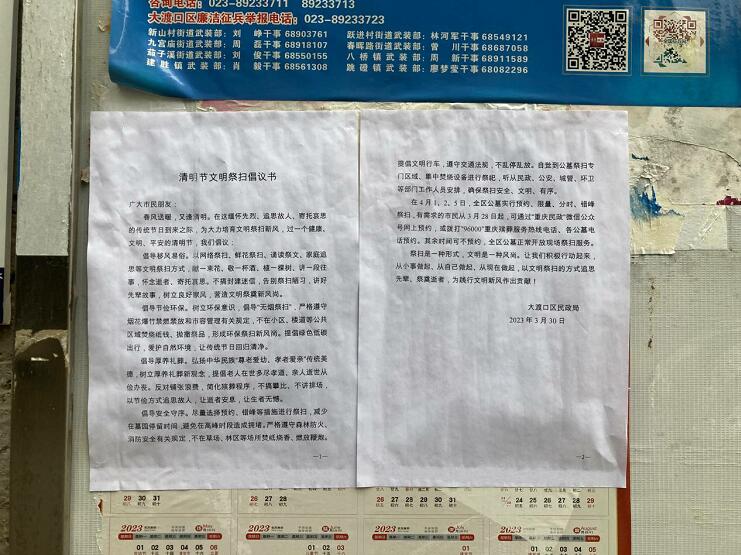 咨询电话：023-89233711 89233713
大渡口区廉洁征兵举报电话：023-89233723
新山村街道武装部：刘 峥干事 68903761
跃进村街道武装部：林河军干事 68549121
九宫庙街道武装部：周 磊干事 68918107
春晖路街道武装部：曾 川干事 68687058
茄子溪街道武装部：刘 俊干事 68550155
八桥镇武装部：周 新干事 68911589
建胜镇武装部：肖 毅干事 68561308
跳磴镇武装部：廖梦莹干事 68082296
清明节文明祭扫倡议书
广大市民朋友：
春风送暖，又逢清明。在这缅怀先烈、追思故人、寄托哀思
的传统节日到来之际，为大力培育文明祭扫新风，过一个健康、
文明、平安的清明节，我们倡议：
倡导移风易俗。以网络祭扫、鲜花祭扫、诵读祭文、家庭追
思等文明祭扫方式，献一束花、敬一杯酒、植一棵树、讲一段往
事，怀念逝者、寄托哀思。不搞封建迷信，告别祭扫陋习，讲好
先辈故事，树立良好家风，营造文明祭奠新风尚。
倡导节俭环保。树立环保意识，倡导“无烟祭扫”，严格遵守
烟花爆竹禁燃禁放和市容管理有关规定，不在小区、楼道等公共
区域焚烧纸钱、抛撒祭品，形成环保祭扫新风尚。提倡绿色低碳
出行，爱护自然环境，让传统节日回归清净。
倡导厚养礼葬。弘扬中华民族“尊老爱幼、孝老爱亲”传统美
德，树立厚养礼葬新观念，提倡老人在世多尽孝道、亲人逝世从
俭办丧。反对铺张浪费，简化殡葬程序，不搞攀比、不讲排场，
以节俭方式追思故人，让逝者安息，让生者无憾。
倡导安全守序。尽量选择预约、错峰等措施进行祭扫，减少
在墓园停留时间，避免在高峰时段造成拥堵。严格遵守森林防火、
消防安全有关规定，不在草场、林区等场所焚纸烧香、燃放鞭炮。
—1—
提倡文明行车，遵守交通法规，不乱停乱放。自觉到公墓祭扫专
门区域、集中焚烧设备进行祭祀，听从民政、公安、城管、环卫
等部门工作人员安排，确保祭扫安全、文明、有序。
在4月1、2、5日，全区公墓实行预约、限量、分时、错峰
祭扫，有需求的市民从3月28日起，可通过“重庆民政”微信公众
号网上预约，或拨打“96000”重庆殡葬服务热线电话、各公墓电
话预约。其余时间可不预约，全区公墓正常开放现场祭扫服务。
祭扫是一种形式，文明是一种风尚。让我们积极行动起来，
从小事做起、从自己做起、从现在做起，以文明祭扫的方式追思
先辈、祭奠逝者，为践行文明新风作出贡献！
大渡口区民政局
2023年3月30日
—2—
29 30 31
26 27 28
2023
2023
2023
2023